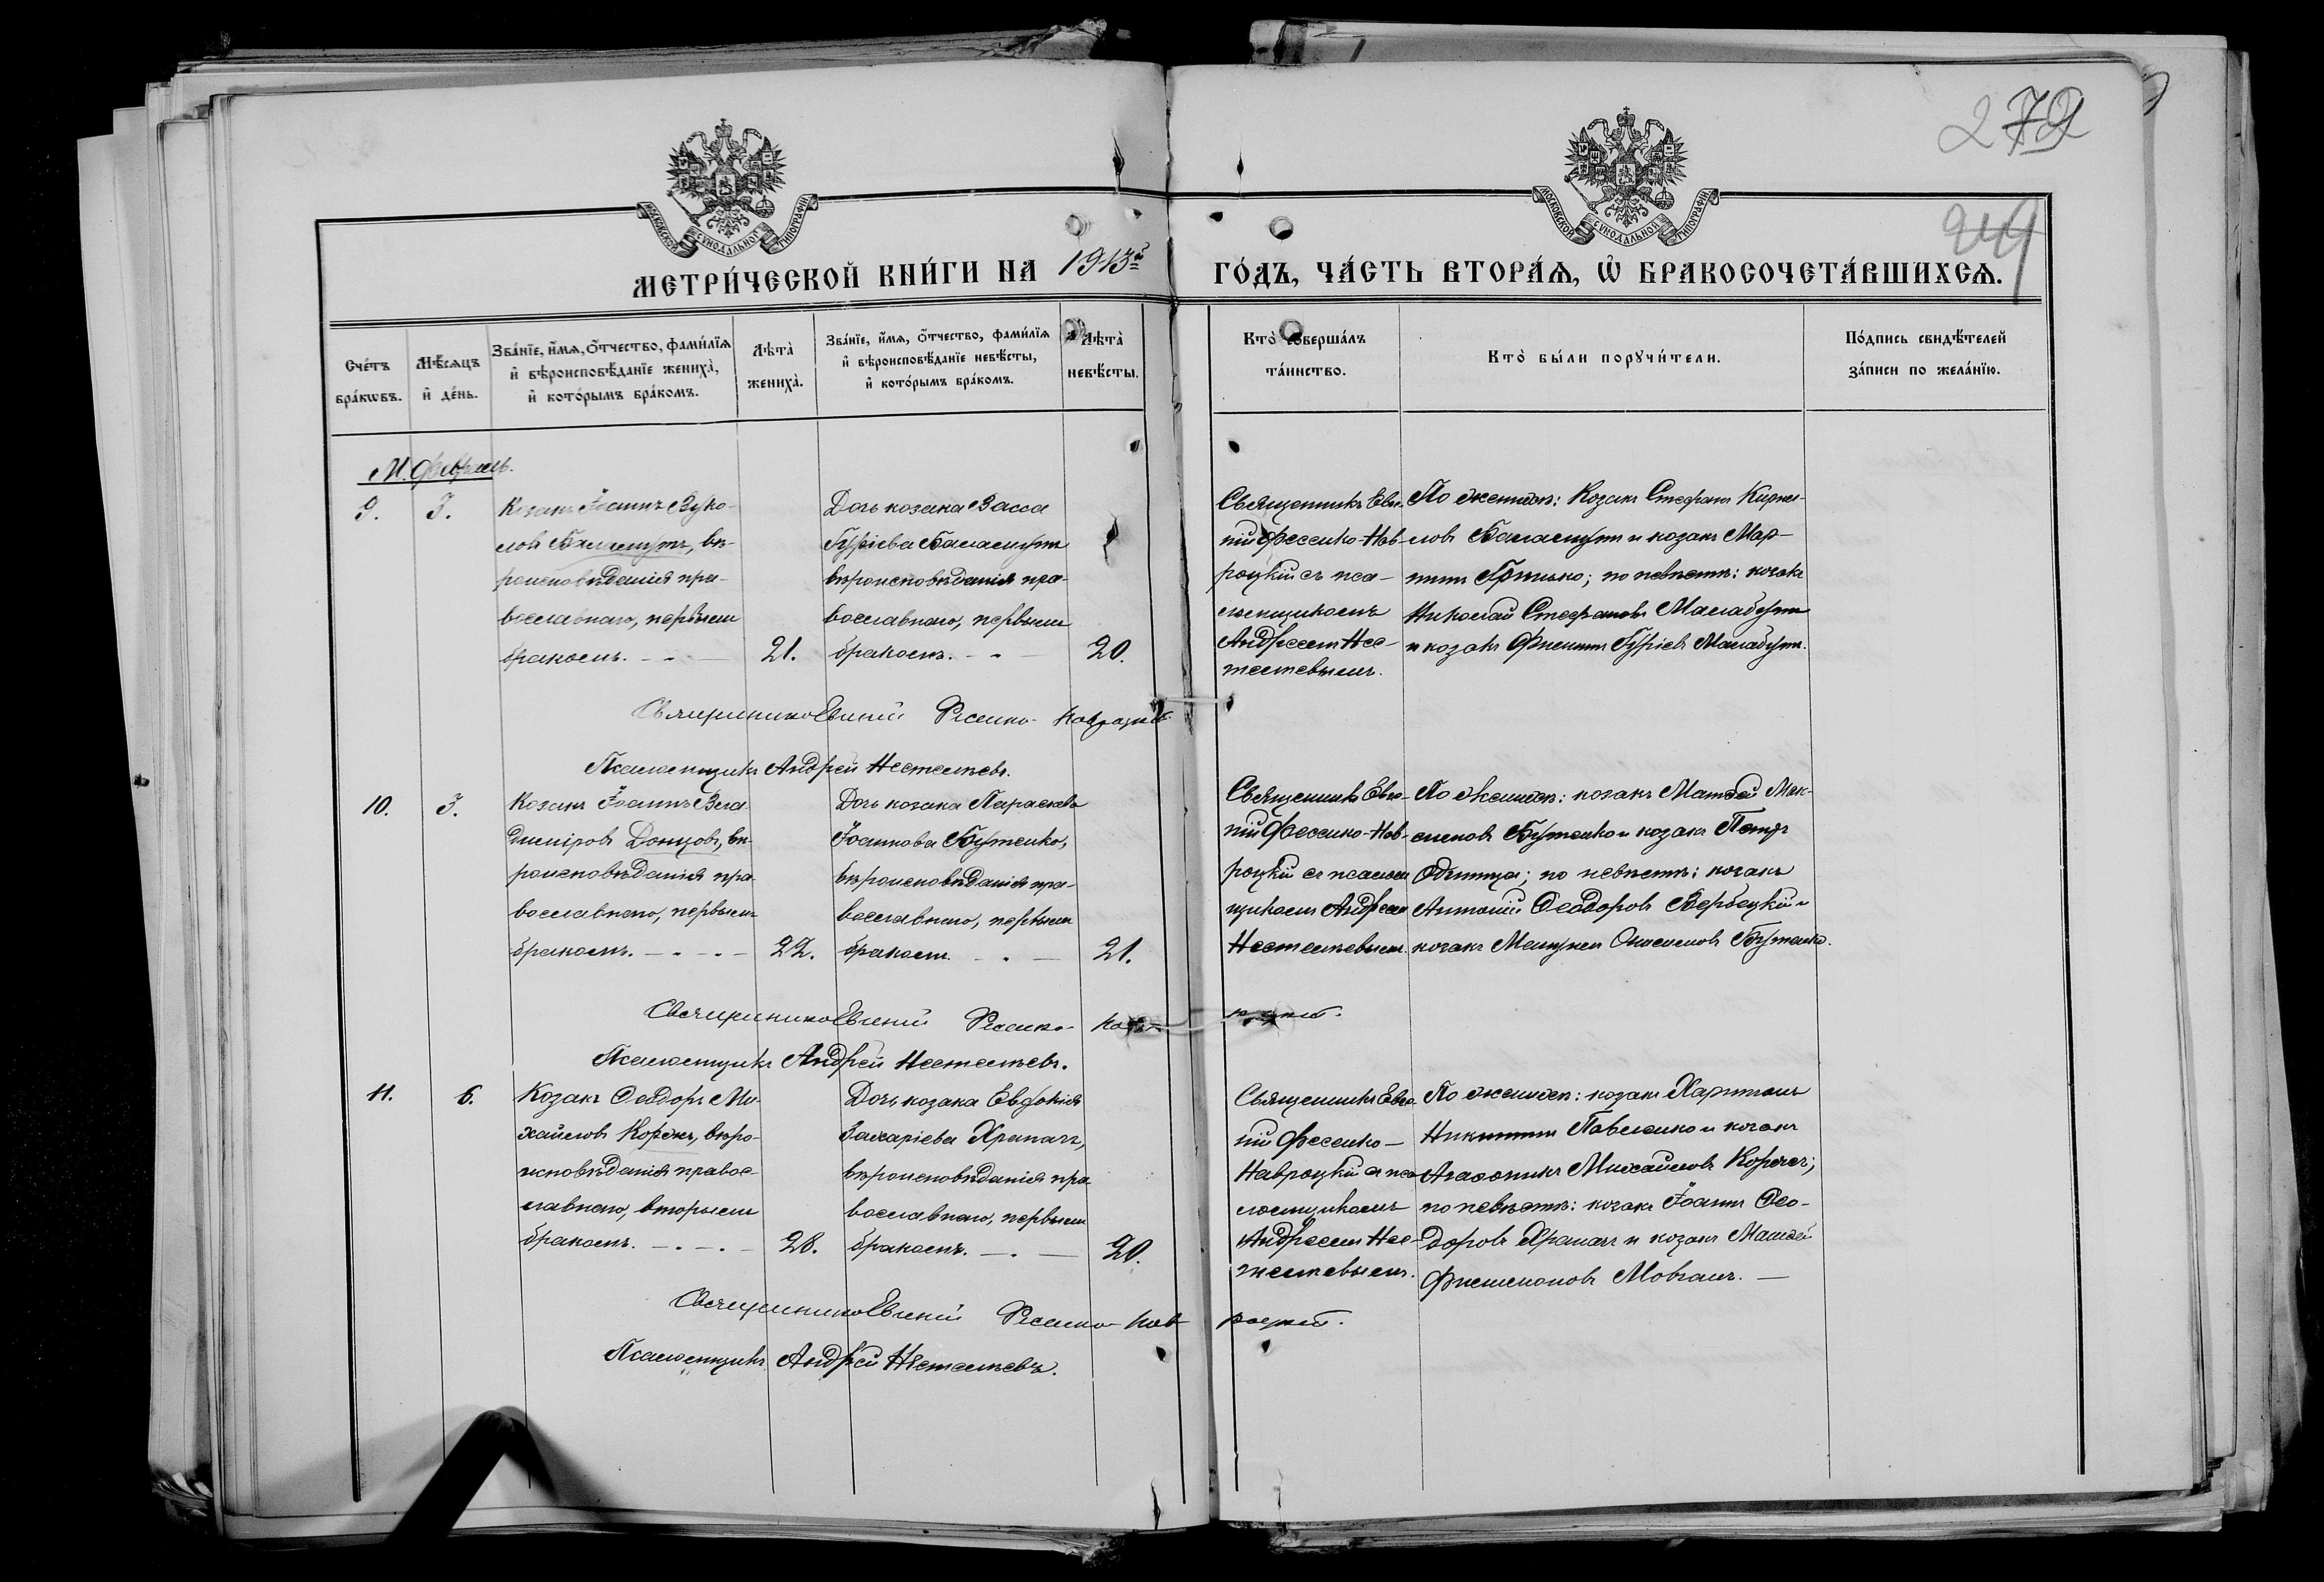 272
249
МОСКОВСКОЙ СѴНОДАЛЬНОЙ ТИПОГРАФІИ
МОСКОВСКОЙ СѴНОДАЛЬНОЙ ТИПОГРАФІИ
МЕТРИ́ЧЕСКОЙ КНИ́ГИ НА 1913й ГО́ДЪ, ЧА́СТЬ ВТОРА́Я, Ѡ҆ БРАКОСОЧЕТА́ВШИХСЯ.
Сче́тъ
бра́кѡвъ.
Мѣ́сяцъ
и҆ де́нь.
Зва́нїе, и҆́мя, ѻ҆́тчество, фами́лїя
и҆ вѣроисповѣ́данїе жениха̀,
и҆ кото́рымъ бра́комъ.
Лѣта̀
жениха̀.
Зва́нїе, и҆́мя, ѻ҆́тчество, фами́лїя
и҆ вѣроисповѣ́данїе невѣ́сты,
и҆ кото́рымъ бра́комъ.
Лѣта̀
невѣ́сты.
Кто̀ соверша́лъ
та́инство.
Кто̀ бы́ли порꙋчи́тели.
По́дпись свидѣ́телей
за́писи по жела́нїю.
М. Февраль.
9.
3.
Козакъ Іоаннъ Вуко-
ловъ Баламутъ, вѣ-
роисповѣданія пра-
вославнаго, первымъ
бракомъ.
21.
Дочь козака Васса
Гуріева Баламутъ
вѣроисповѣданія пра-
вославнаго, первымъ
бракомъ.
20.
Священникъ Евге-
ній Фесенко-Нав-
роцкій съ пса-
ломщикомъ
Андреемъ Нес-
тельевымъ.
По женихѣ: Козакъ Стефанъ Кирил-
ловъ Баламутъ и козакъ Мар-
тинъ Гринько; по невѣстѣ: козакъ
Николай Стефановъ Малабутъ
и козакъ Филиппъ Гуріевъ Малабутъ.
Священникъ Евгеній Фесенко-Навроцкій
Псаломщикъ Андрей Нестельевъ.
10.
3.
Козакъ Іоаннъ Вла-
диміровъ Донцовъ, вѣ-
роисповѣданія пра-
вославнаго, первымъ
бракомъ.
22.
Дочь козака Параскева
Іоаннова Бутенко,
вѣроисповѣданія пра-
вославнаго, первымъ
бракомъ.
21.
Священникъ Евге-
ній Фесенко-Нав-
роцкій съ псалом
щикомъ Андреемъ
Нестельевымъ.
По женихѣ: козакъ Матѳей Мак-
симовъ Бутенко и козакъ Петръ
по невѣстѣ: козакъ
Антоній Ѳеодоровъ Вербецкій и
козакъ Бутенко.
Священникъ Евгеній Фесенко-Навроцкій.
Псаломщикъ Андрей Нестельевъ.
11.
6.
Козакъ Ѳеодоръ Ми-
хайловъ Коржъ, вѣро-
исповѣданія правос-
лавнаго, вторымъ
бракомъ.
28.
Дочь козака Евдокія
Захаріева Храпачъ,
вѣроисповѣданія пра
вославнаго, первымъ
бракомъ.
20.
Священникъ Евге-
ній Фесенко-
Навроцкій съ пса-
ломщикомъ
Андреемъ Нес-
тельевымъ.
По женихѣ: козакъ Харитонъ
Никитинъ Павленко и козакъ
Агаѳоникъ Михайловъ Коржъ;
по невѣстѣ: козакъ Іоаннъ Ѳео-
доровъ Храпачъ и козакъ Матѳей
Филимоновъ Мовчанъ.
Священникъ Евгеній Фесенко-Навроцкій.
Псаломщикъ Андрей Нестельевъ.